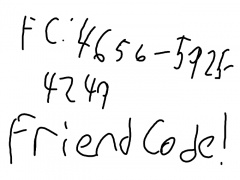 FC: 4656-5925-
4247
Friend Code!